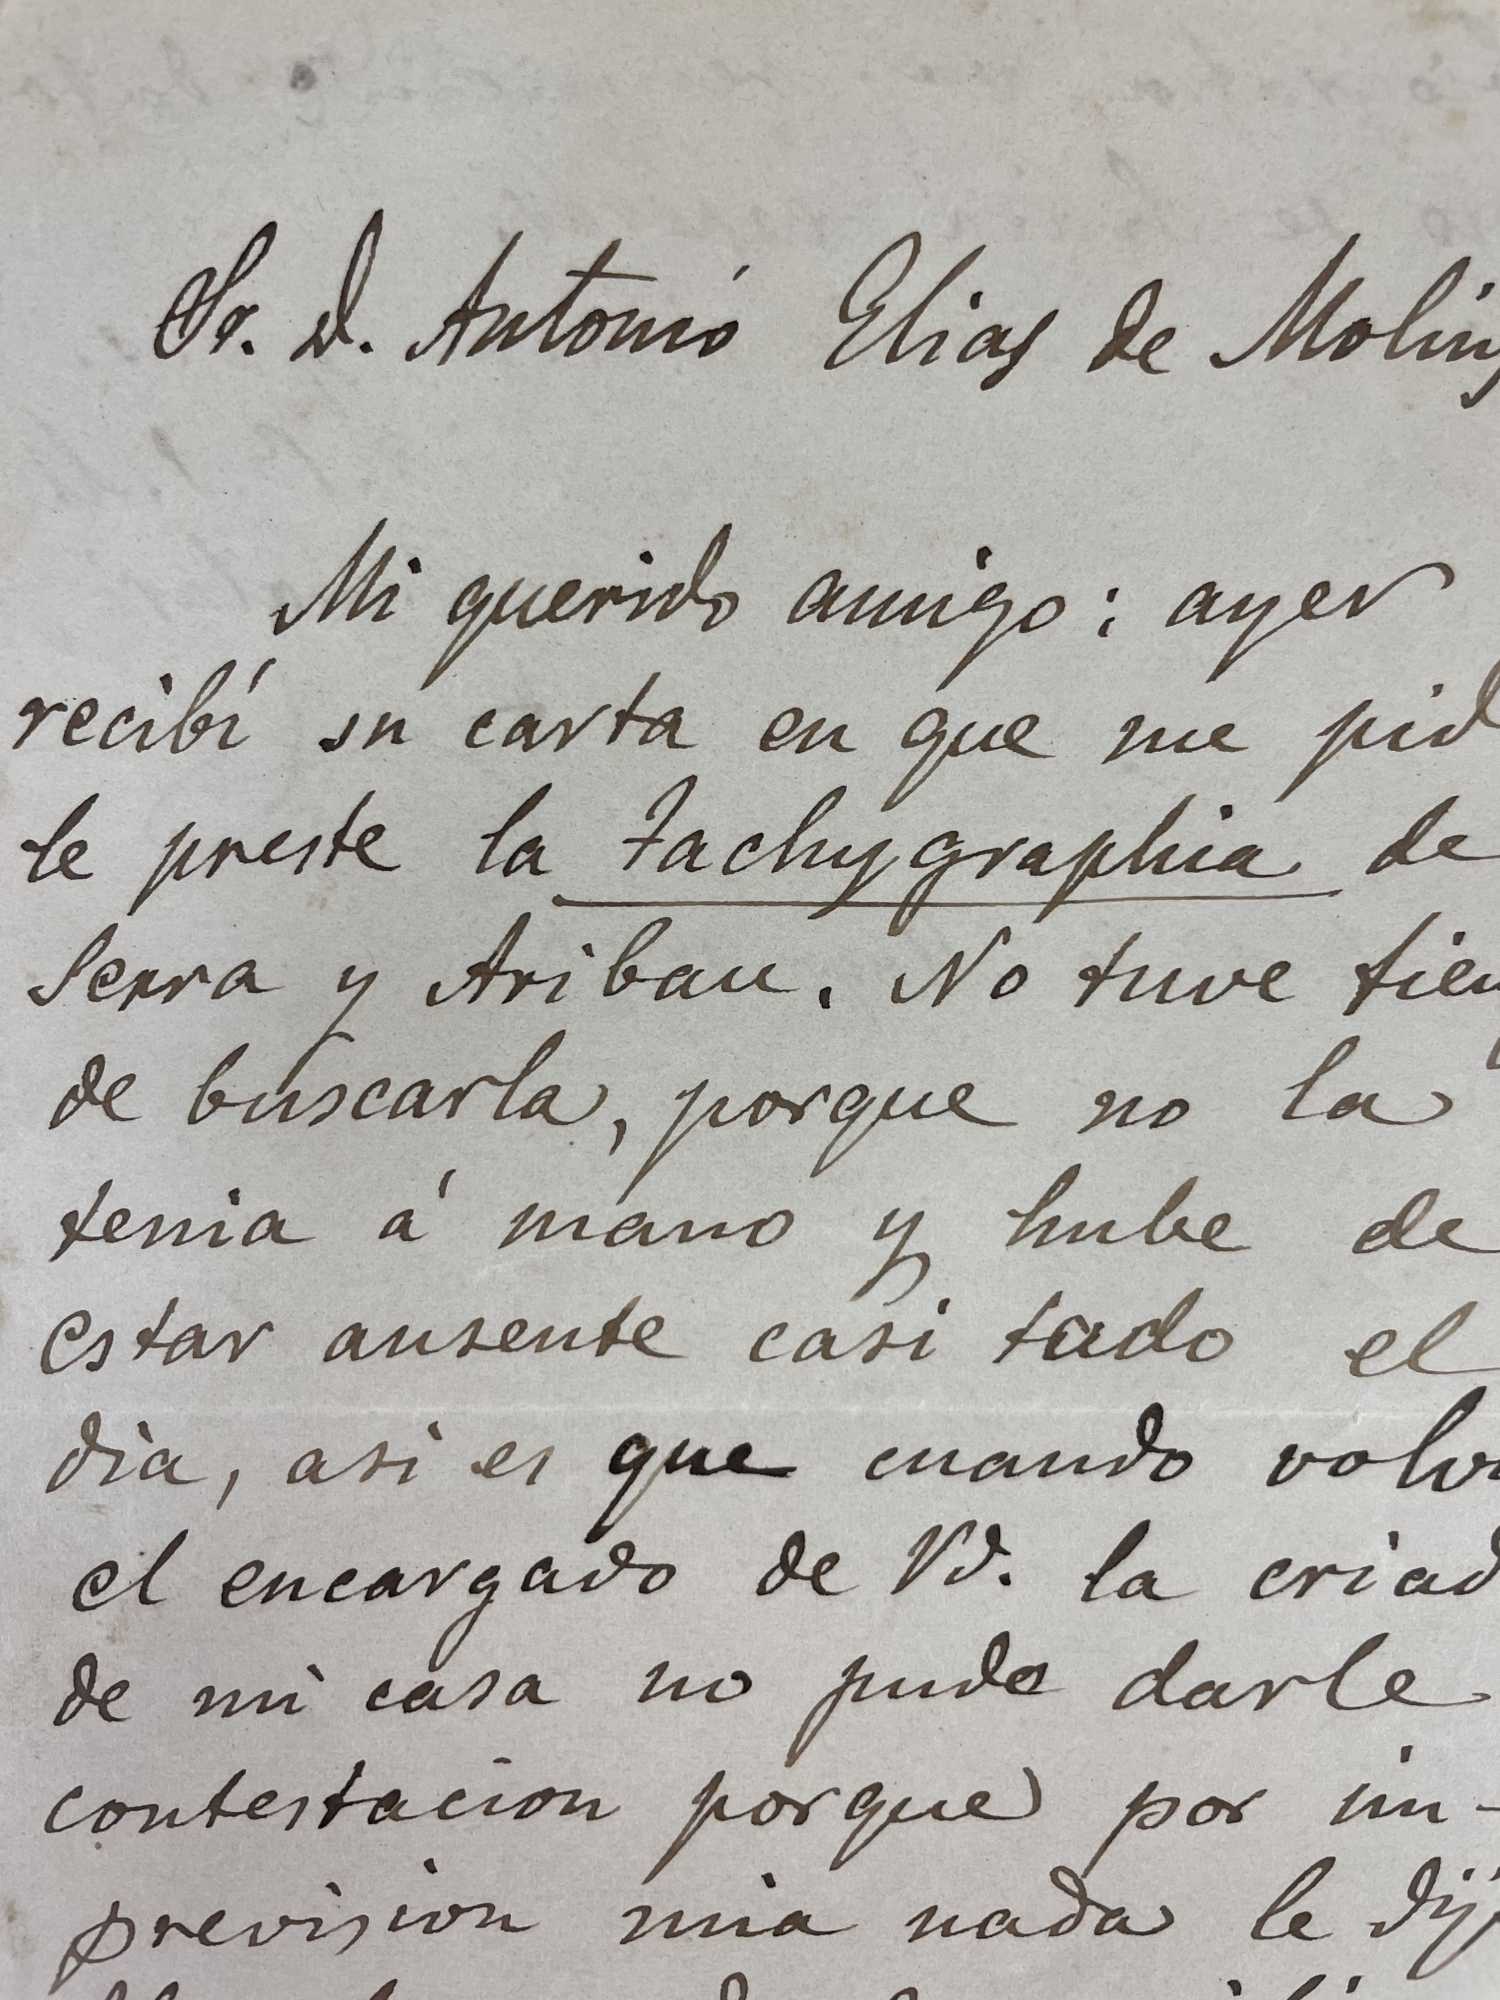 Sr. D. Antonió Elias de Molins
Mi querido amigo: ayer
recibí su carta en que me pid
le preste la Tachygraphia de
Serra y Aribau. No tuve tiem
de buscarla, porque no la
tenia á mano y hube de
estar ausente casi todo el
dia, asi es que cuando volv
el encargado de Vd. la criad
de mi casa no pudo darle
contestacion porque por im-
prevision mia nada le dij